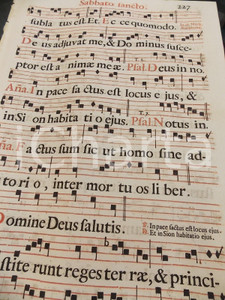 Sabbato sancto. 227
subla tus est. Et E cce quomodo.
D eus adjuvat me, & Do minus susce-
ptor est a nimæ meæ. Psal. Deus in no.
Aña. I n pace fa ctus est locus e jus, &
in Si on habita ti o ejus. Psal. N otus in.
Aña. F a ctus sum sic ut homo sine ad-
to ri o, inter mor tu os li ber.
D omine Deus salutis.
℣. In pace factus est locus ejus.
℟. Et in Sion habitatio ejus.
stite runt reges ter ræ, & princi-